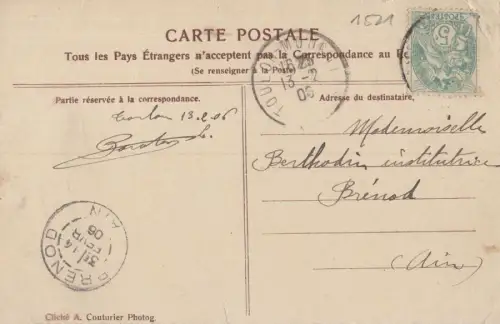 1521
CARTE POSTALE
Tous les Pays Étrangers n'acceptent pas la Correspondance au
(Se renseigner à la Poste)
Partie réservée à la correspondance.
Adresse du destinataire,
Toulon 13.2.06
Mademoiselle
Berthodin institutrice
Brénod
(Ain)
BRENOD
3E 14
FEVR
06
AIN
Cliché A. Couturier Photog.